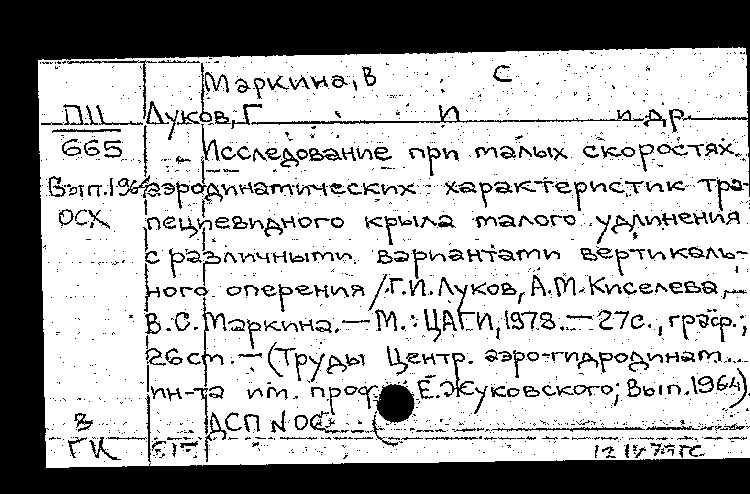 Маркина, В С
ПЦ Луков, Г И и др.
665 Исследование при малых скоростях
Вып.1964 аэродинамических характеристик тра-
ОСХ пециевидного крыла малого удлинения
с различными вариантами вертикаль-
ного оперения / Г.И. Луков, А.М. Киселева,
В.С. Маркина. — М.: ЦАГИ, 1978. — 27с., граф.;
26см. — (Труды Центр. аэро-гидродинам.
ин-та им. проф. Е. Жуковского; Вып. 1964).
В ДСП N 00
ГК